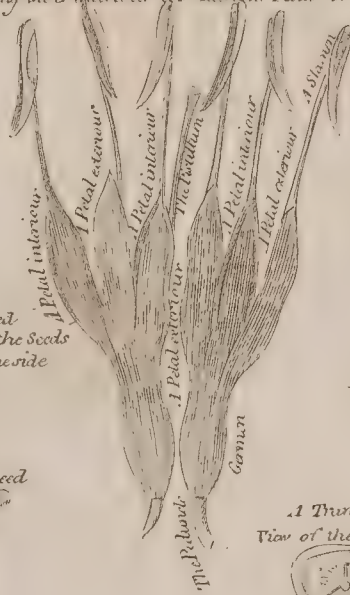 A Petal interiour
A Petal exteriour
A Petal interiour
The Pistillum
A Petal interiour
A Petal exteriour
A Stamen
A Petal exteriour
the Seeds
Germen
The Peduncle
View of the